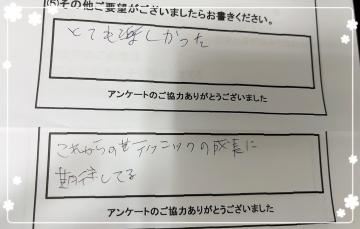 (5)その他ご要望がございましたらお書きください。
とても楽しかった
アンケートのご協力ありがとうございました
これからの甘テクニックの成長に
期待してる
アンケートのご協力ありがとうございました